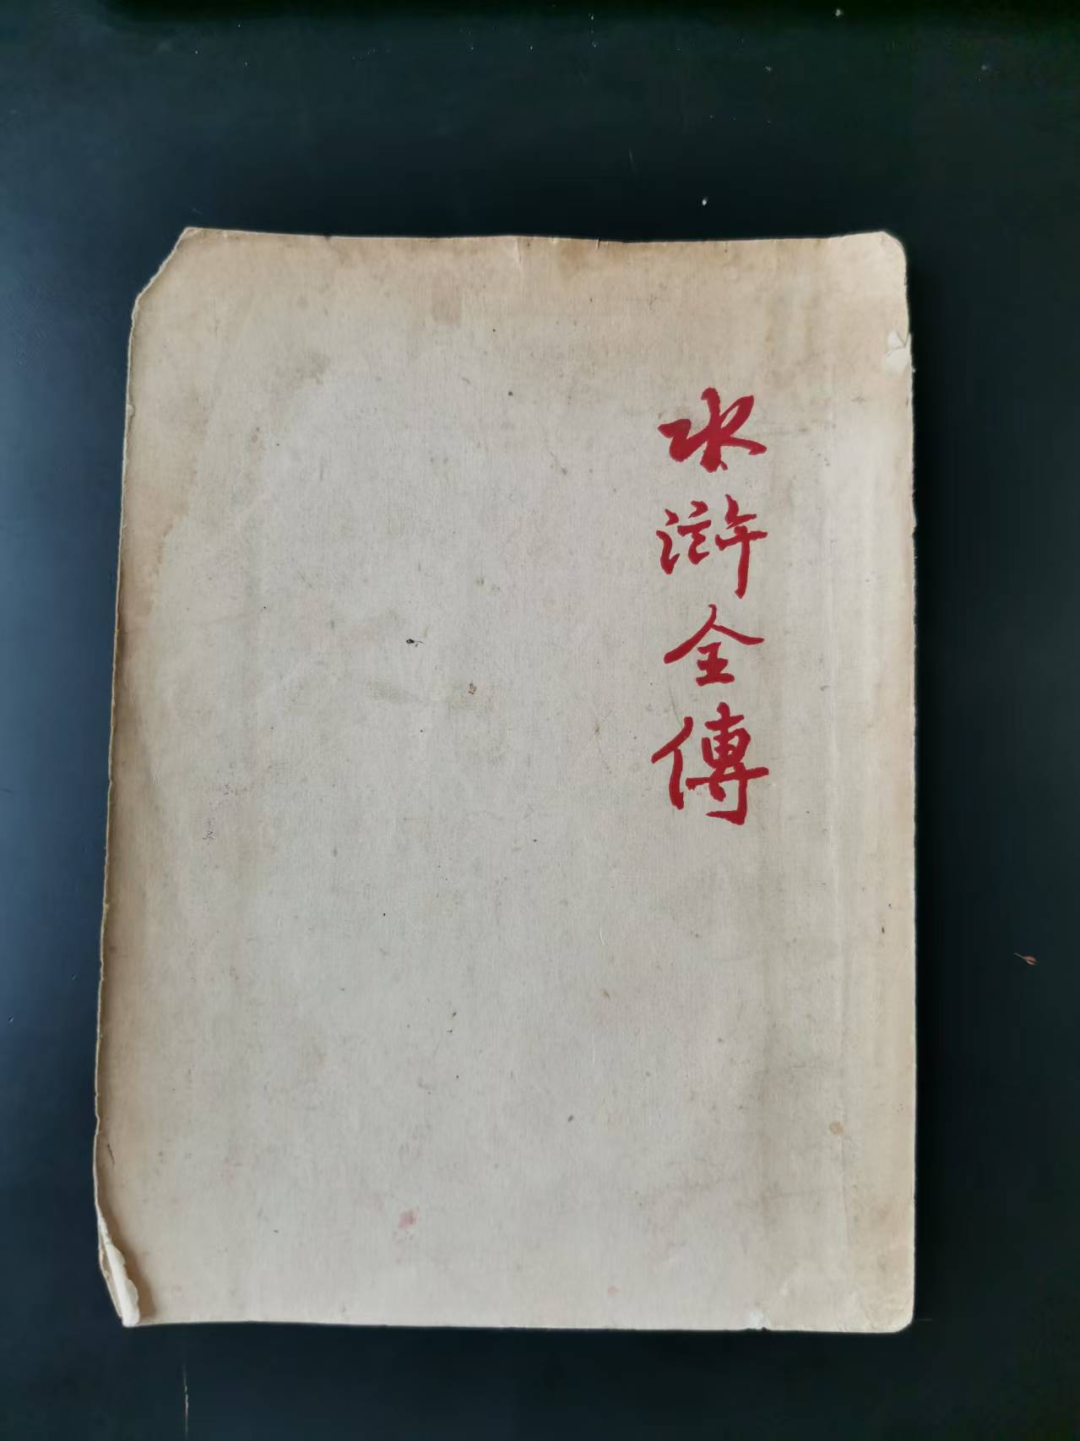 水滸全傳